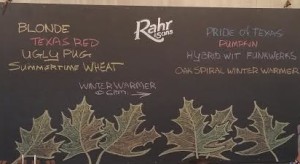 Rahr
& Sons
BLONDE
TEXAS RED
UGLY PUG
SUMMERTIME WHEAT
PRIDE OF TEXAS
PUMPKIN
HYBRID WIT FUNKWERKS
OAK SPIRAL WINTER WARMER
WINTER WARMER